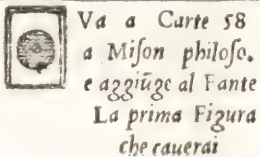 Va a Carte 58
a Miſon philoſo.
e aggiũge al Fante
La prima Figura
che cauerai